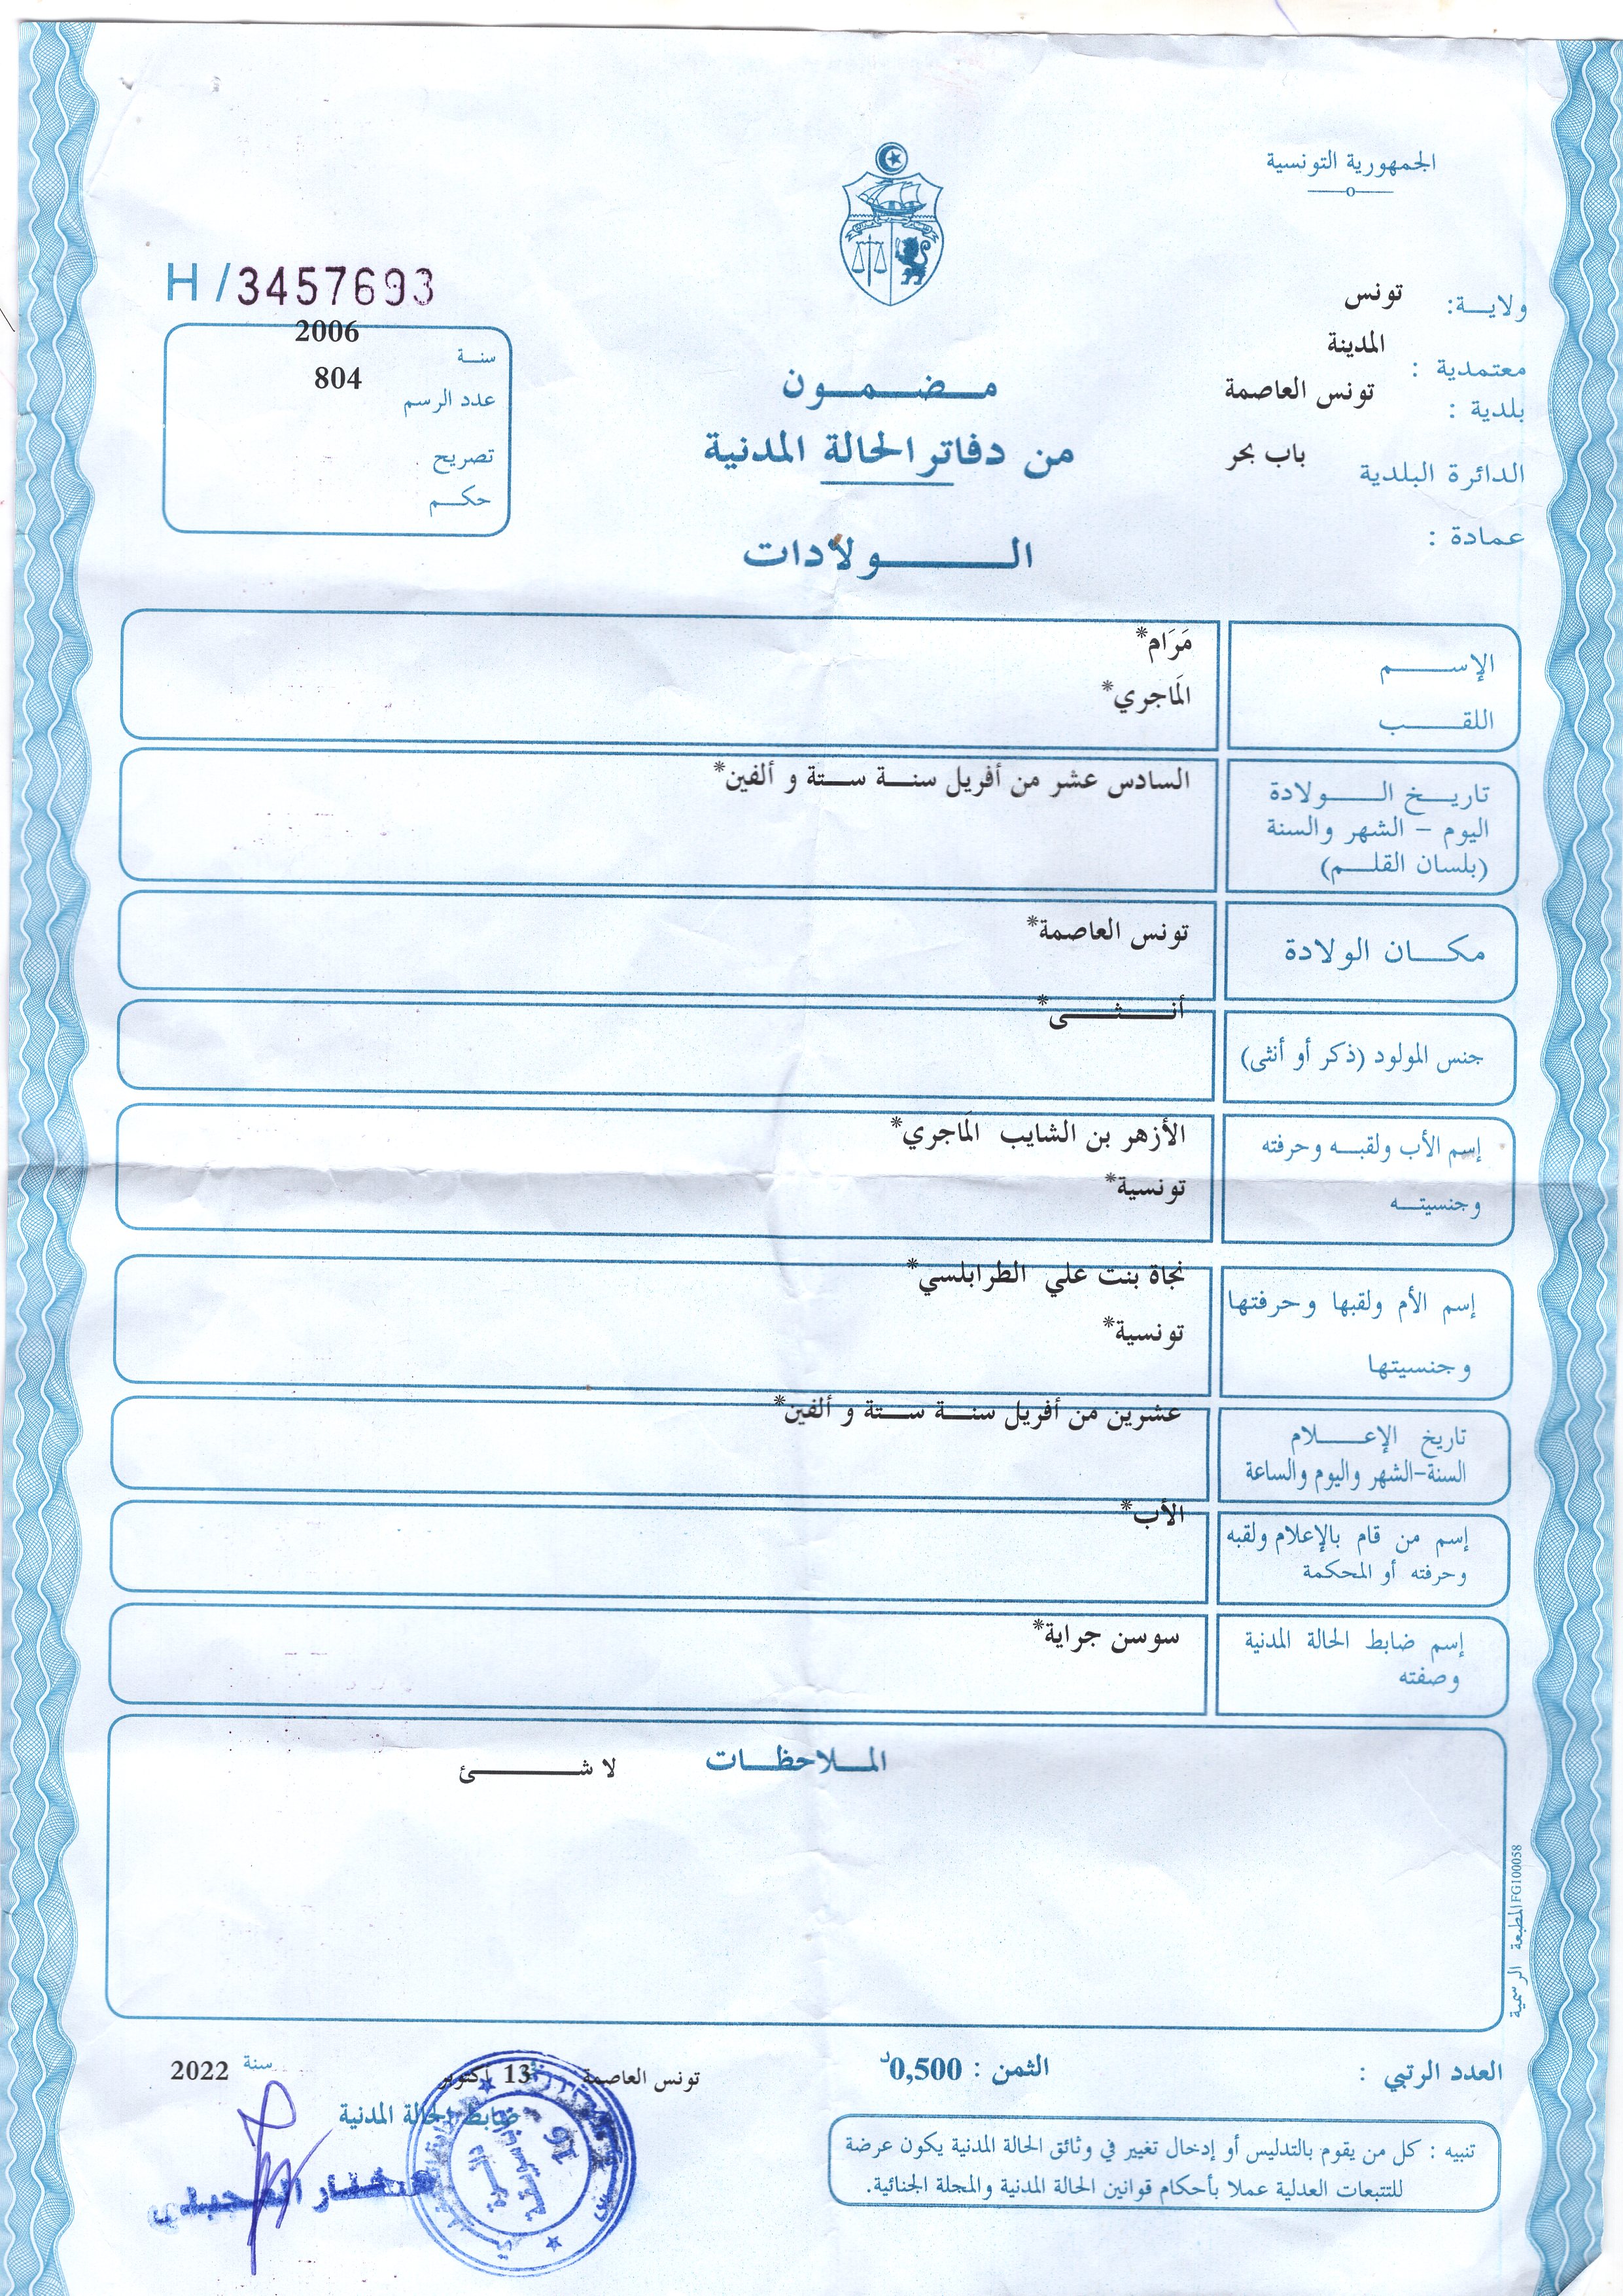 الجمهورية التونسية
ولايـــة: تونس
معتمدية : المدينة
بلدية : تونس العاصمة
الدائرة البلدية باب بحر
عمادة :
H/3457693
سنــة 2006
عدد الرسم 804
تصريح
حكــم
مـضـمـون
من دفاتر الحالة المدنية
الـولادات
الإســـم مَرَام*
اللقـــب المَاجري*
تاريـخ الـــولادة السادس عشر من أفريل سنـة ستـة و ألفين*
اليوم - الشهر والسنة
(بلسان القلـم)
مكــان الولادة تونس العاصمة*
جنس المولود (ذكر أو أنثى) أنــثــى*
إسم الأب ولقبـه وحرفته الأزهر بن الشايب المَاجري*
وجنسيتــه تونسية*
إسم الأم ولقبها وحرفتها نجاة بنت علي الطرابلسي*
وجنسيتها تونسية*
تاريخ الإعـــلام عشرين من أفريل سنـة ستـة و ألفين*
السنة-الشهر واليوم والساعة
إسم من قام بالإعلام ولقبه الأب*
وحرفته أو المحكمة
إسم ضابط الحالة المدنية سوسن جراية*
وصفته
المـلاحظـات لا شـــئ
المطبعة الرسمية FG100058
العدد الرتبي :
الثمن : 0,500د
تونس العاصمة 13 أكتوبر سنة 2022
ضابط الحالة المدنية
16
تنبيه : كل من يقوم بالتدليس أو إدخال تغيير في وثائق الحالة المدنية يكون عرضة
للتتبعات العدلية عملا بأحكام قوانين الحالة المدنية والمجلة الجنائية.